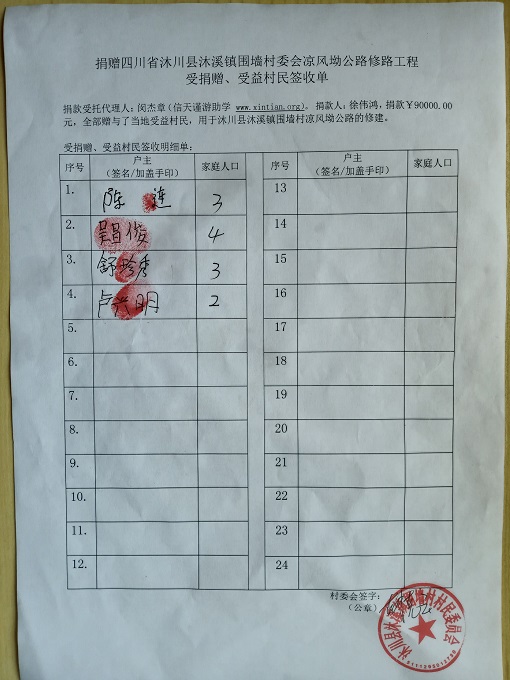 捐赠四川省沐川县沐溪镇围墙村委会凉风坳公路修路工程
受捐赠、受益村民签收单
捐款受托代理人：闵杰章（信天谨游助学 www.xintian.org）。捐款人：徐伟鸿，捐款￥90000.00
元，全部赠与了当地受益村民，用于沐川县沐溪镇围墙村凉风坳公路的修建。
受捐赠、受益村民签收明细单：
序号 户主（签名/加盖手印） 家庭人口 序号 户主（签名/加盖手印） 家庭人口
1. 陈 连 3 13
2. 吴昌俊 4 14
3. 舒珍秀 3 15
4. 卢兴明 2 16
5. 17
6. 18
7. 19
8. 20
9. 21
10. 22
11. 23
12. 24
村委会签字：
（公章）
沐川县沐溪镇围墙村村民委员会